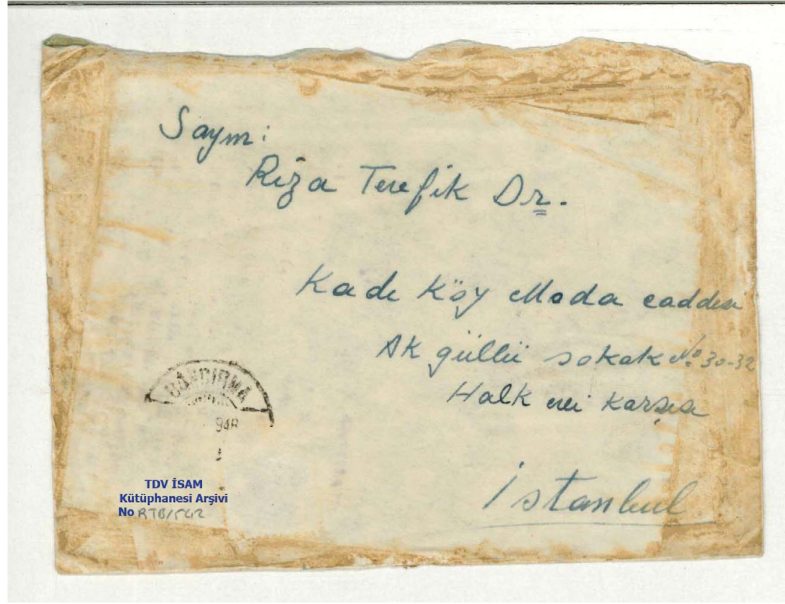 Sayın:
Riza Tevefik Dr.
Kadı Köy Moda caddesi
Ak güllü sokak No 30-32
Halk evi karşısı
İstanbul
BANDIRMA
948
TDV İSAM
Kütüphanesi Arşivi
No RTB/